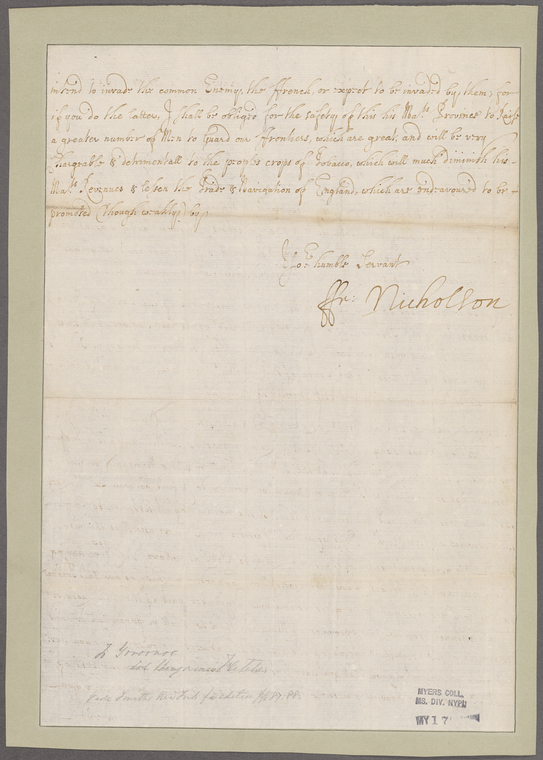 intend to invade the common Enemy, the ffrench, or expect to be invaded by them; for
if you do the latter, I shall be obliged for the safety of this his Maty's Province to Raise
a greater number of Men to Guard our ffrontiers, which are great, and will be very
Chargeable & detrimentall to the people's crops of Tobacco, which will much diminish his
Maty's Revenues & lessen the Trade & Navigation of England, which are endeavoured to be
promoted (though weakly) by
Yor humble Servant
ffr: Nicholson
To Governor
Col Benjamin Fletcher
MYERS COLL.
MS. DIV. NYPL
MY 17